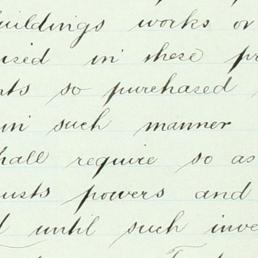 buildings works or
used in these pr
nts so purchased
in such manner
hall require so as
usts powers and
d until such inve